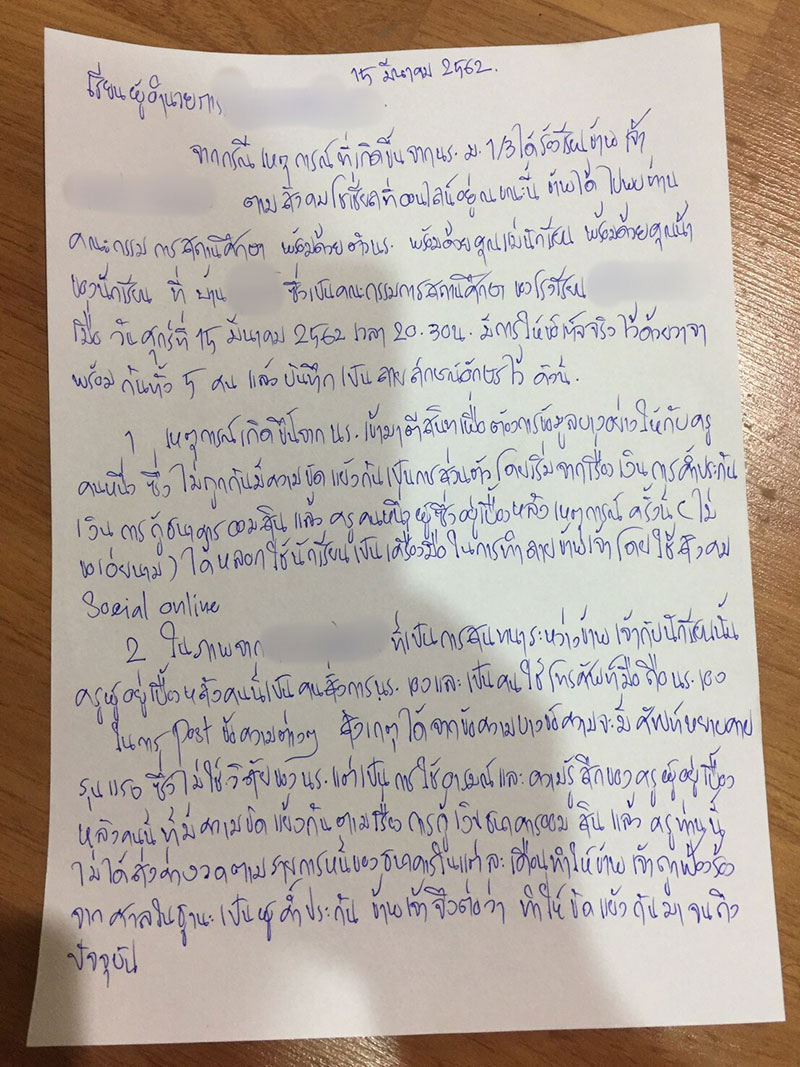 15 มีนาคม 2562.
เรียนผู้อำนวยการ
จากกรณีเหตุการณ์ที่เกิดขึ้นจากนร. ม.1/3 ได้ร้องเรียนข้าพเจ้า
ตามสังคมโซเชียลที่ออนไลน์อยู่ณขณะนี้ ข้าพได้ไปพบท่าน
คณะกรรมการสถานศึกษา พร้อมด้วยตัวนร. พร้อมด้วยคุณแม่นักเรียน พร้อมด้วยคุณน้า
ของนักเรียน ที่ บ้าน ซึ่งเป็นคณะกรรมการสถานศึกษา ของโรงเรียน
เมื่อ วันศุกร์ที่ 15 มีนาคม 2562 เวลา 20.30น. มีการให้ข้อเท็จจริงไว้ด้วยวาจา
พร้อมกันทั้ง 5 คน แล้วบันทึกเป็นลายลักษณ์อักษรไว้ ดังนี้.
1 เหตุการณ์เกิดขึ้นจาก นร. เข้ามาตีสนิทเพื่อต้องการข้อมูลบางอย่างให้กับครู
คนหนึ่ง ซึ่งไม่ถูกกันมีความขัดแย้งกันเป็นการส่วนตัวโดยเริ่มจากเรื่องเงินการค้ำประกัน
เงินการกู้ธนาคารออมสิน แล้ว ครูคนหนึ่งผู้ซึ่งอยู่เบื้องหลังเหตุการณ์ครั้งนี้ (ไม่
ขอเอ่ยนาม) ได้หลอกใช้นักเรียนเป็นเครื่องมือในการทำลายข้าพเจ้าโดยใช้สังคม
Social online
2 ในภาพจาก ที่เป็นการสนทนาระหว่างข้าพเจ้ากับนักเรียนนั้น
ครูผู้อยู่เบื้องหลังคนนี้เป็นคนสั่งการนร. เองและเป็นคนใช้โทรศัพท์มือถือนร. เอง
ในการ post ข้อความต่างๆ สังเกตุได้จากข้อความบางข้อความจะมีศัพท์หยาบคาย
รุนแรง ซึ่งไม่ใช่วิสัยของนร. แต่เป็นการใช้อารมณ์และความรู้สึกของครูผู้อยู่เบื้อง
หลังคนนี้ที่มีความขัดแย้งกันตามเรื่องการกู้เงินธนาคารออมสิน แล้วครูท่านนี้
ไม่ได้ส่งค่างวดตามรายการหนี้ของธนาคารในแต่ละเดือนทำให้ข้าพเจ้าถูกฟ้องร้อง
จากศาลในฐานะเป็นผู้ค้ำประกัน ข้าพเจ้าจึงต่อว่า ทำให้ขัดแย้งกันมาจนถึง
ปัจจุบัน